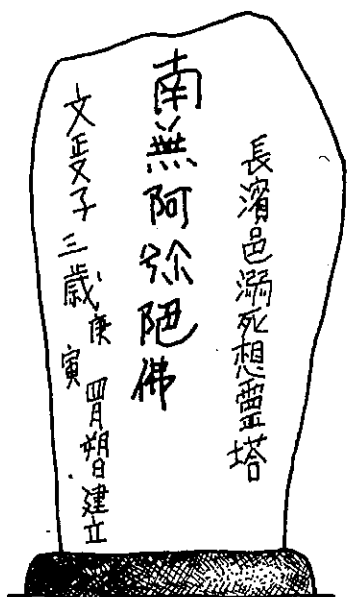 長濱邑溺死想霊塔
南無阿弥陀佛
文政子三歳庚寅 四月朔日建立